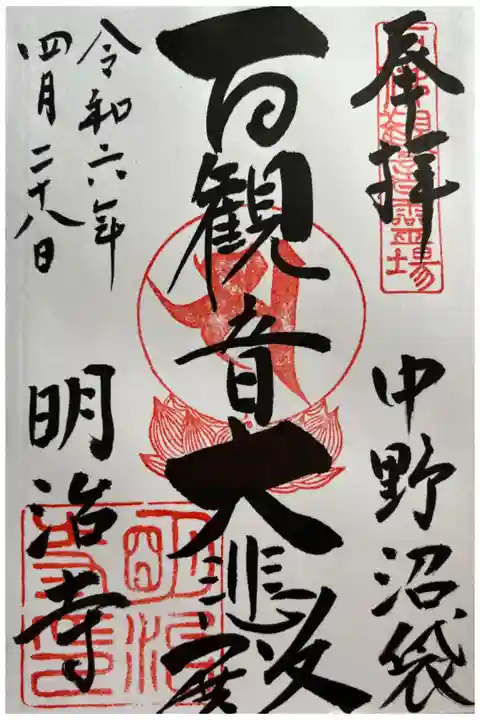 奉拝
中野沼袋
百観音大悲殿
令和六年
四月二十八日
明治寺